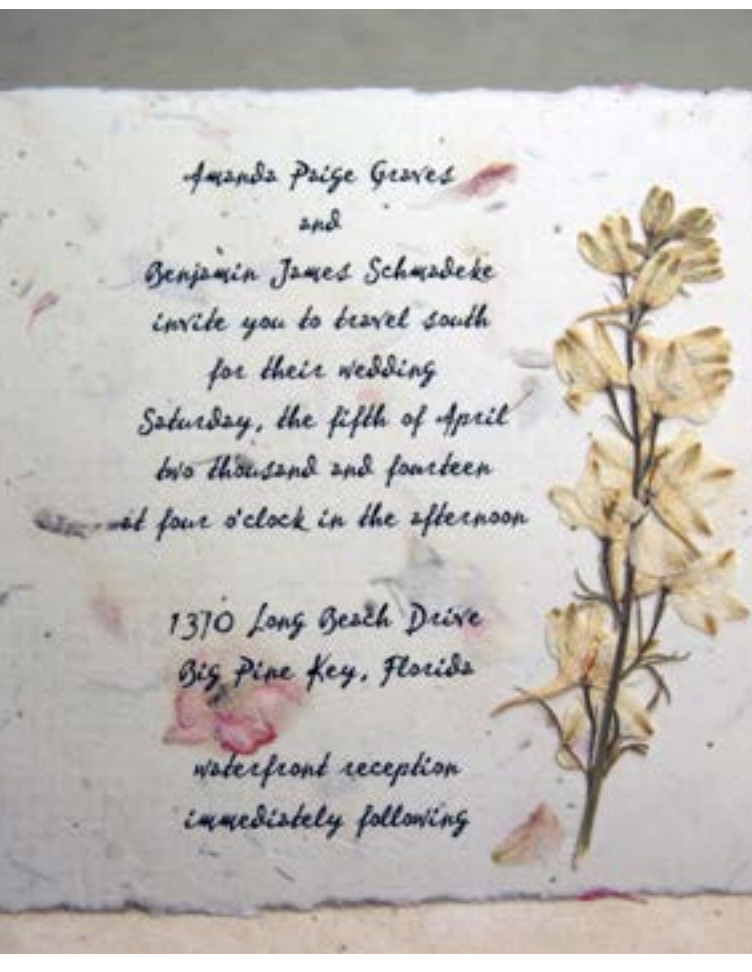 Amanda Paige Graves
and
Benjamin James Schmadeke
invite you to travel south
for their wedding
Saturday, the fifth of April
two thousand and fourteen
at four o'clock in the afternoon
1370 Long Beach Drive
Big Pine Key, Florida
waterfront reception
immediately following